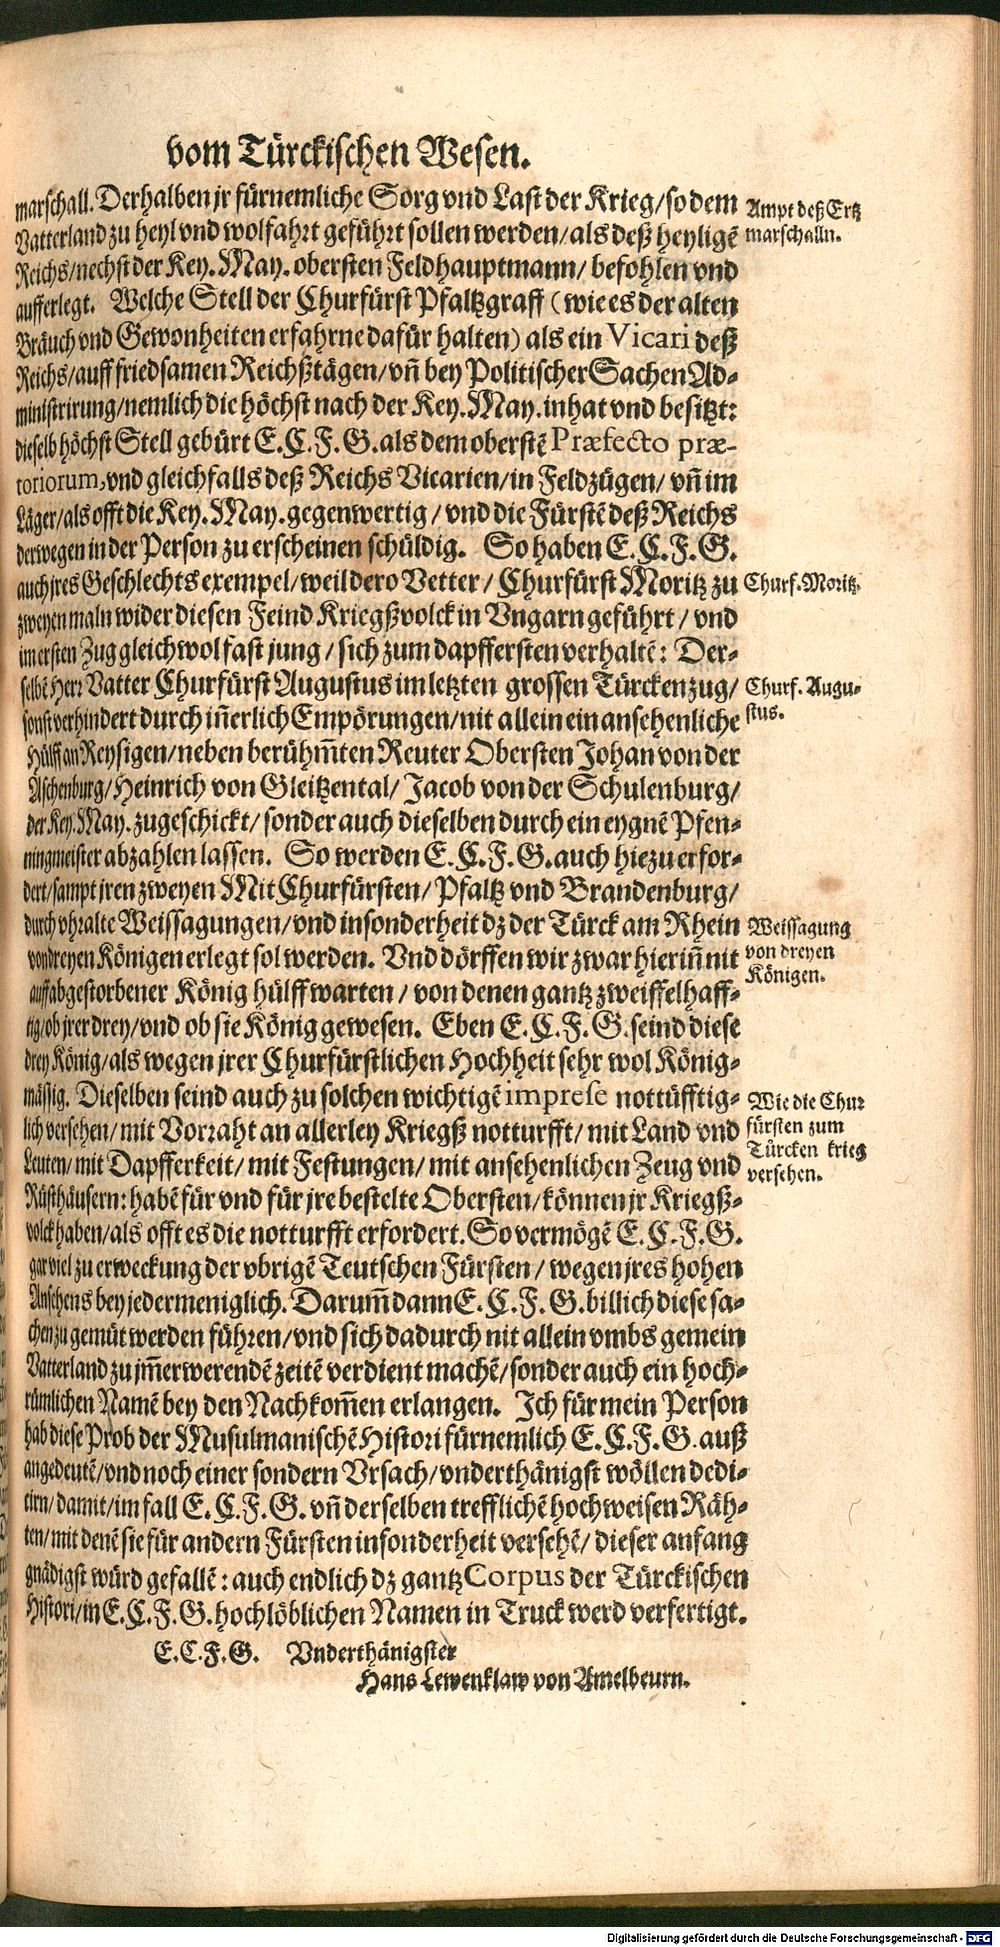 vom Türckischen Wesen.
marschall. Derhalben jr fürnemliche Sorg vnd Last der Krieg/ so dem
Vatterland zu heyl vnd wolfahrt geführt sollen werden/ als deß heyligẽ
Reichs/ nechst der Key. May. obersten Feldhauptmann/ befohlen vnd
aufferlegt. Welche Stell der Churfürst Pfaltzgraff (wie es der alten
Bräuch vnd Gewonheiten erfahrne dafür halten) als ein Vicari deß
Reichs/ auff friedsamen Reichßtägen/ vñ bey Politischer Sachen Ad-
ministrirung/ nemlich die höchst nach der Key. May. inhat vnd besitzt:
dieselb höchst Stell gebürt E. C. F. G. als dem oberstẽ Præfecto præ-
toriorum, vnd gleichfalls deß Reichs Vicarien/ in Feldzügen/ vñ im
Läger/ als offt die Key. May. gegenwertig/ vnd die Fürstẽ deß Reichs
derwegen in der Person zu erscheinen schüldig. So haben E. C. F. G.
auch jres Geschlechts exempel/ weil dero Vetter/ Churfürst Moritz zu
zweyen maln wider diesen Feind Kriegßvolck in Vngarn geführt/ vnd
im ersten Zug gleichwol fast jung/ sich zum dapffersten verhaltẽ: Der-
selbẽ Herr Vatter Churfürst Augustus im letzten grossen Türckenzug/
sonst verhindert durch iñerlich Empörungen/ nit allein ein ansehenliche
Hülff an Reysigen/ neben berühm̃ten Reuter Obersten Johan von der
Aschenburg/ Heinrich von Gleitzental/ Jacob von der Schulenburg/
der Key. May. zugeschickt/ sonder auch dieselben durch ein eygnẽ Pfen-
ningmeister abzahlen lassen. So werden E. C. F. G. auch hiezu erfor-
dert/ sampt jren zweyen MitChurfürsten/ Pfaltz vnd Brandenburg/
durch vhralte Weissagungen/ vnd insonderheit dz der Türck am Rhein
von dreyen Königen erlegt sol werden. Vnd dörffen wir zwar hieriñ nit
auff abgestorbener König hülff warten/ von denen gantz zweiffelhaff-
tig/ ob jrer drey/ vnd ob sie König gewesen. Eben E. C. F. G. seind diese
drey König/ als wegen jrer Churfürstlichen Hochheit sehr wol König-
mässig. Dieselben seind auch zu solchen wichtigẽ imprese nottüfftig-
lich versehen/ mit Vorraht an allerley Kriegß notturfft/ mit Land vnd
Leuten/ mit Dapfferkeit/ mit Festungen/ mit ansehenlichen Zeug vnd
Rüsthäusern: habẽ für vnd für jre bestelte Obersten/ können jr Kriegß-
volck haben/ als offt es die notturfft erfordert. So vermögẽ E. C. F. G.
gar viel zu erweckung der vbrigẽ Teutschen Fürsten/ wegen jres hohen
Ansehens bey jedermeniglich. Darum̃ dann E. C. F. G. billich diese sa-
chen zu gemüt werden führen/ vnd sich dadurch nit allein vmbs gemein
Vatterland zu jm̃erwerendẽ zeitẽ verdient machẽ/ sonder auch ein hoch-
rümlichen Namẽ bey den Nachkom̃en erlangen. Ich für mein Person
hab diese Prob der Musulmanischẽ Histori fürnemlich E. C. F. G. auß
angedeutẽ/ vnd noch einer sondern Vrsach/ vnderthänigst wöllen dedi-
cirn/ damit/ im fall E. C. F. G. vñ derselben trefflichẽ hochweisen Räh-
ten/ mit denẽ sie für andern Fürsten insonderheit versehẽ/ dieser anfang
gnädigst würd gefallẽ: auch endlich dz gantz Corpus der Türckischen
Histori/ in E. C. F. G. hochlöblichen Namen in Truck werd verfertigt.
E. C. F. G. Vnderthänigster
Hans Lewenklaw von Amelbeurn.
Ampt deß Ertz
marschalln.
Churf. Moritz.
Churf. Augu-
stus.
Weissagung
von dreyen
Königen.
Wie die Chur
fürsten zum
Türcken krieg
versehen.
Digitalisierung gefördert durch die Deutsche Forschungsgemeinschaft - DFG